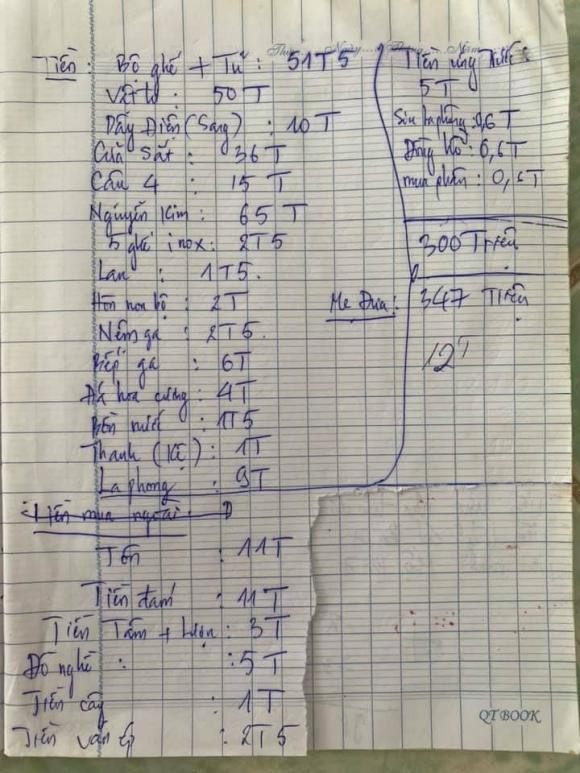 Thứ Ngày Tháng Năm
Tiền : Bộ ghế + Tủ : 51T5
Vật tư : 50T
Dây Điện (Sang) : 10T
Cửa Sắt : 36T
Cầu 4 : 15T
Nguyễn Kim : 65T
5 ghế inox : 2T5
Lan : 1T5.
Hòn non bộ : 2T
Nêm gà : 2T5.
Bếp ga : 6T
Đá hoa cương : 4T
Bồn nước : 1T5
Thanh (Kệ) : 1T
La phong : 9T
Tiền ứng
5T
Sửa ba phông : 0,6T
Đồng hồ : 0,6T
mua phân : 0,6T
300 Triệu
Mẹ Đưa : 347 Triệu
12T
Tiền mua ngoài
Tôn : 11T
Tiền đám : 11T
Tiền Tấm + : 3T
Đồ nghề : 5T
Tiền cây : 1T
Tiền ván ép : 2T5
QTBOOK